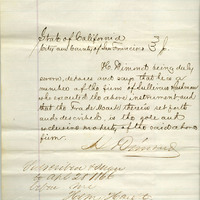 State of California
City and County of San Francisco } ss.
H. Dimond being duly
sworn, deposes and says that he is a
member of the firm of
who executed the above instrument and
that the Trade Mark therein set forth
and described, is the sole and
exclusive property of the said above
firm
H. Dimond
Subscribed & sworn
to 1866
before me